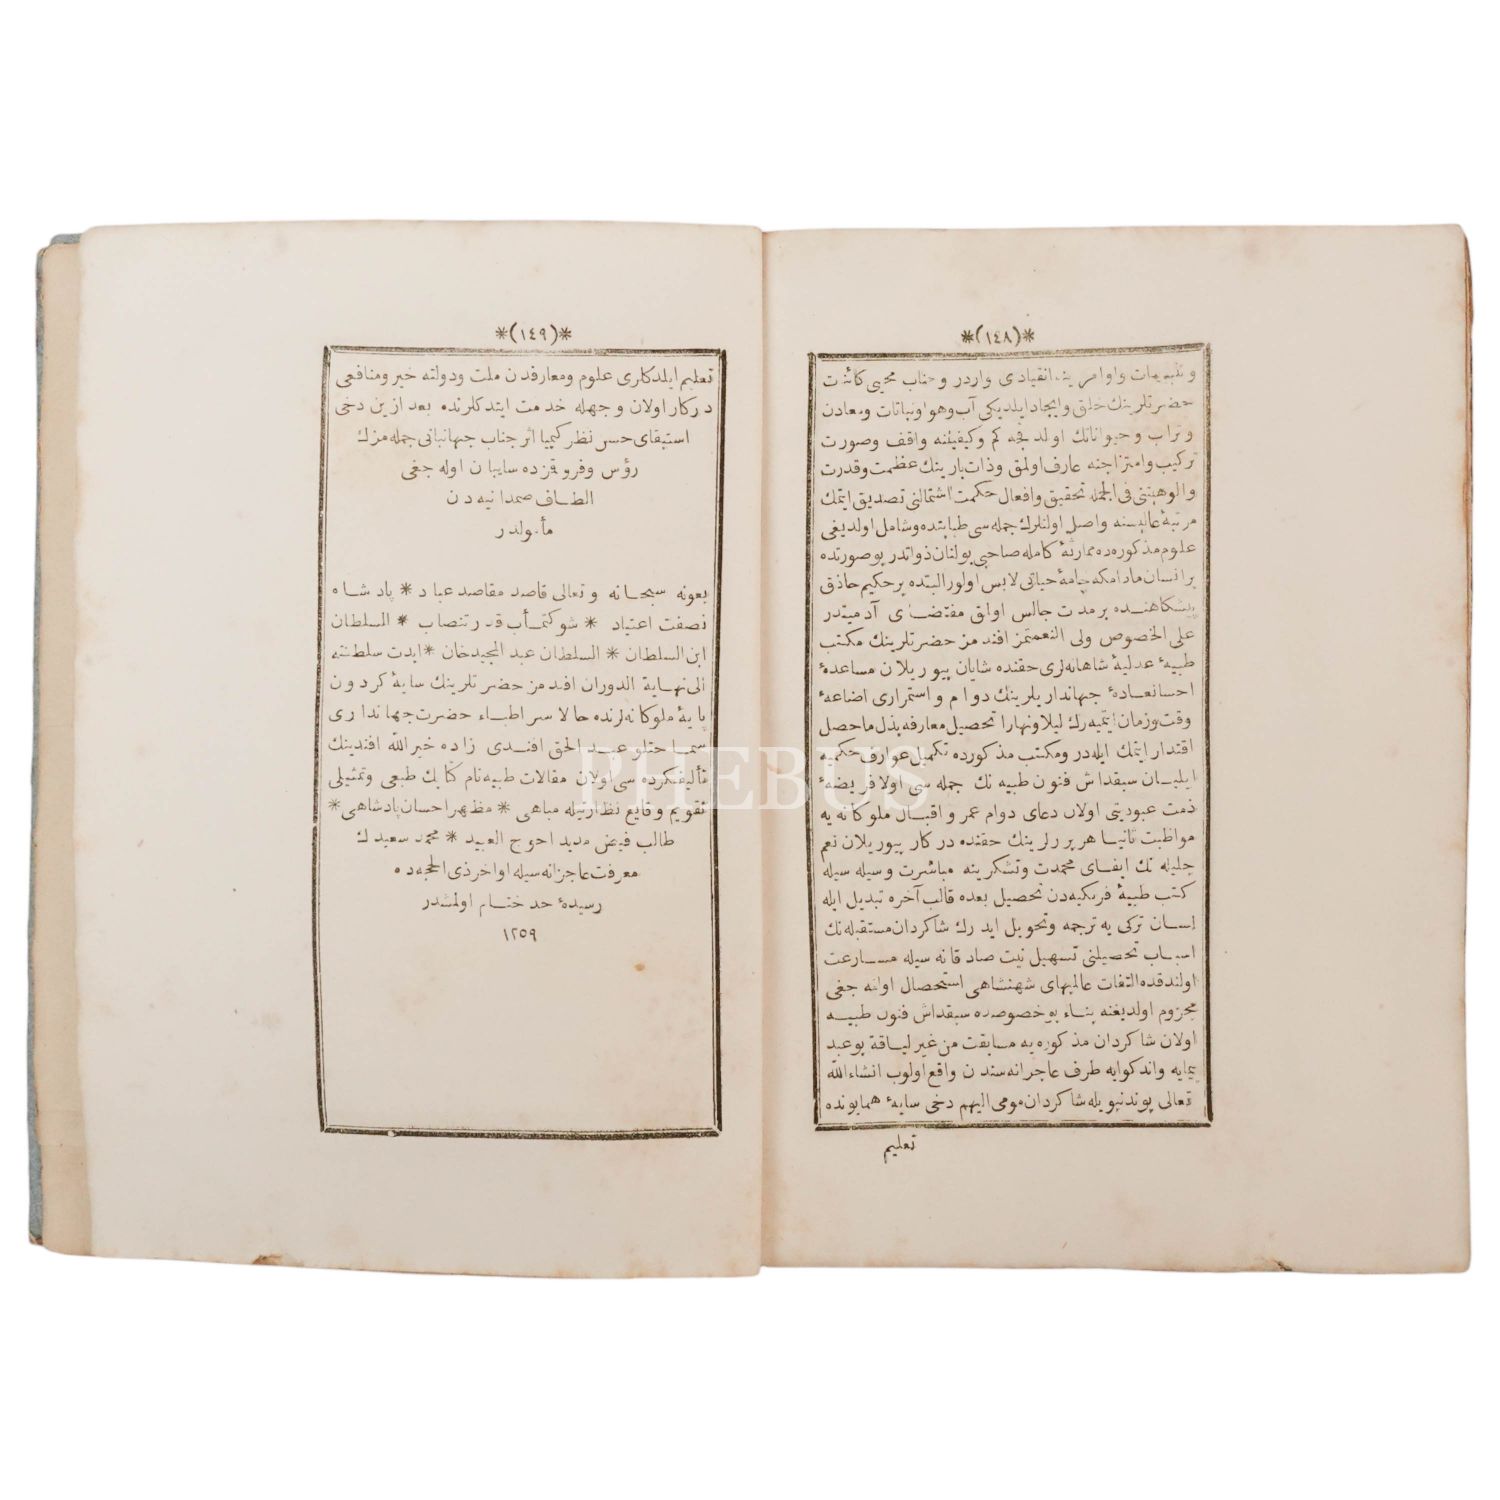 *(١٤٨)*
و تنبيهات و اوامرينه انقيادى واردر و جناب محيى كائنات
حضرتلرينك خلق و ايجاد ايلديكى آب و هوا و نباتات و معادن
و تراب و حيواناتك اولديغى كم و كيفيتنه واقف و صورت
تركيب و امتزاجنه عارف اولمق و ذات بارينك عظمت و قدرت
و الوهيتنى فى الجمله تحقيق و افعال حكمت اشتمالنى تصديق ايتمك
مرتبۀ عاليسنه واصل اولنلرك جمله سى طبابتده و شامل اولديغى
علوم مذكوره ده ممارثۀ كامله صاحبى بولنان ذواتدر بو صورتده
بر انسان مادامكه جامۀ حياتى لابس اولور البتده بر حكيم حاذق
پيشكاهنده بر مدت جالس اولق مقتضاى آدميتدر
على الخصوص ولى النعممز افندمز حضرتلرينك مكتب
طبيۀ عدليۀ شاهانه لرى حقنده شايان بيوريلان مساعدۀ
احسانعادۀ جهانداريلرينك دوام و استمرارى اضاعۀ
وقت و زمان ايتميه رك ليلا و نهارا تحصيل معارفه بذل ما حصل
اقتدار ايتمك ايله در و مكتب مذكورده تكميل عوارف حكميه
ايليان سبقداش فنون طبيه نك جمله سى اولا فريضۀ
ذمت عبوديتى اولان دعاى دوام عمر و اقبال ملوكانه يه
مواظبت ثانيا هر بر رلرينك حقنده دركار بيوريلان نعم
جليله نك ايفاى محمدت و تشكرينه مباشرت و سيله سيله
كتب طبيۀ فرنكيه دن تحصيل بعده قالب آخره تبديل ايله
لسان تركى يه ترجمه و تحويل ايدرك شاكردان مستقبله نك
اسباب تحصيلنى تسهيل نيت صادقانه سيله مسارعت
اولندقده التفات عاليبهاى شهنشاهى استحصال اولنه جغى
مجزوم اولديغنه بناء بو خصوصده سبقداش فنون طبيه
اولان شاكردان مذكوره يه مسابقت من غير لياقة بو عبد
بيمايه و اندكوايه طرف عاجزانه سندن واقع اولوب انشاء الله
تعالى بوندنبويله شاكردان مومى اليهم دخى سايۀ همايونده
تعليم
*(١٤٩)*
تعليم ايلدكلرى علوم و معارفدن ملت و دولته خير و منافعى
دركار اولان وجهله خدمت ايتدكلرنده بعد ازين دخى
استبقاى حسن نظر كيميا اثر جناب جهانبانى جمله مزك
رؤس و فروقزده سايبان اوله جغى
الطاف صمدانيه دن
مأمولدر
بعونه سبحانه و تعالى قاصد مقاصد عباد * پادشاه
نصفت اعتياد * شوكتمأب قدر تنصاب * السلطان
ابن السلطان * السلطان عبد المجيد خان * ايدت سلطنته
الى نهاية الدوران افندمز حضرتلرينك سايۀ كردون
پايۀ ملوكانه لرنده حالا سر اطباء حضرت جهاندارى
سماحتلو عبد الحق افندى زاده خير الله افندينك
تأليفكرده سى اولان مقالات طبيه نام كتابك طبعى و تمثيلى
تقويم و قايع نظارتيله مباهى * مظهر احسان پادشاهى *
طالب فيض مديد احوج العبيد * محمد سعيدك
معرفت عاجزانه سيله اواخر ذى الحجه ده
رسيدۀ حد ختام اولمشدر
١٢٥٩
PHEBUS